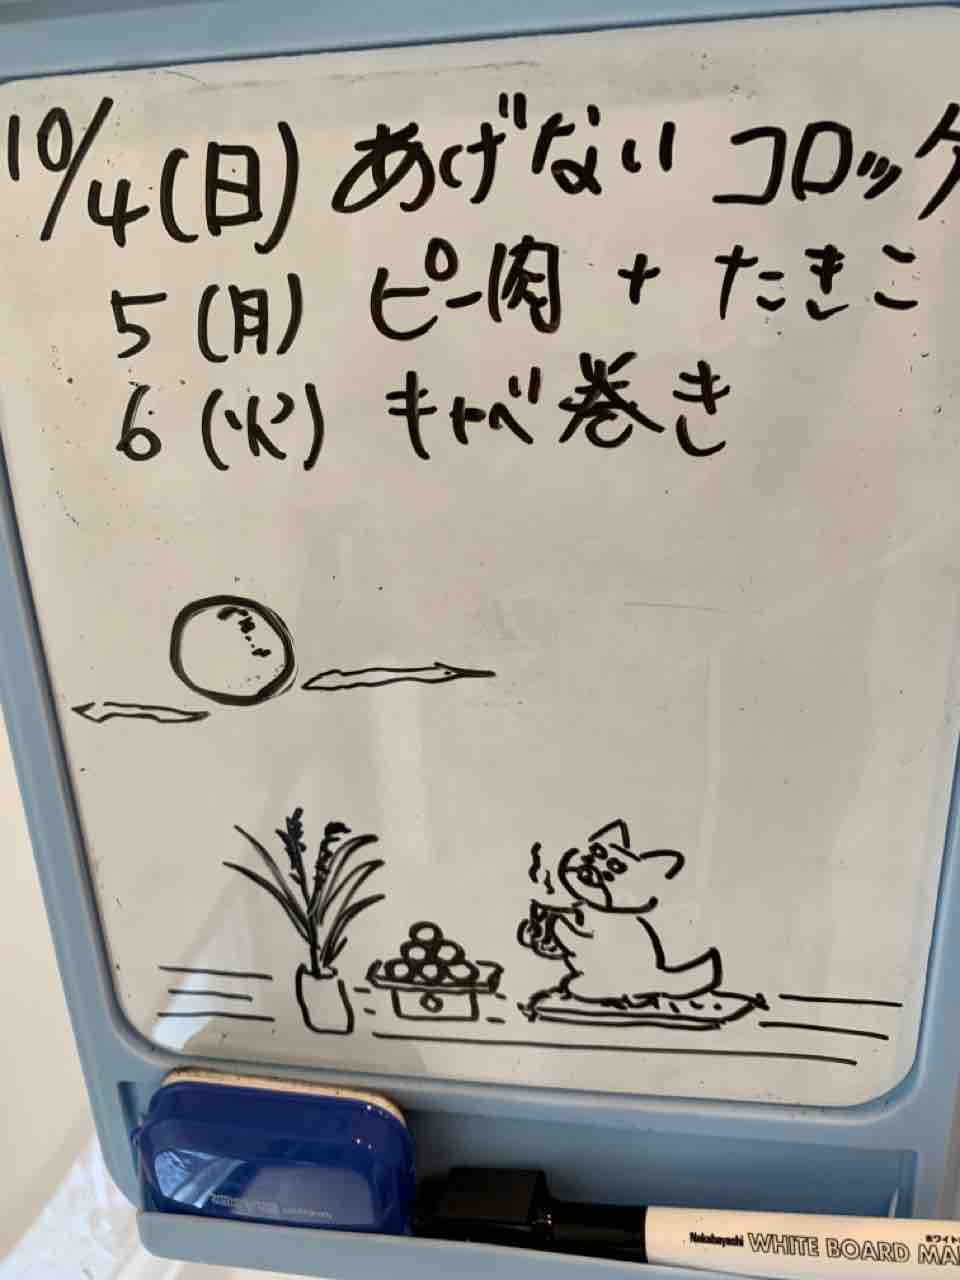 10/4(日) あげない コロッケ
5(月) ピー肉 + たきこ
6(火) キャベ巻き
Nakabayashi WHITE BOARD MA
ホワイト